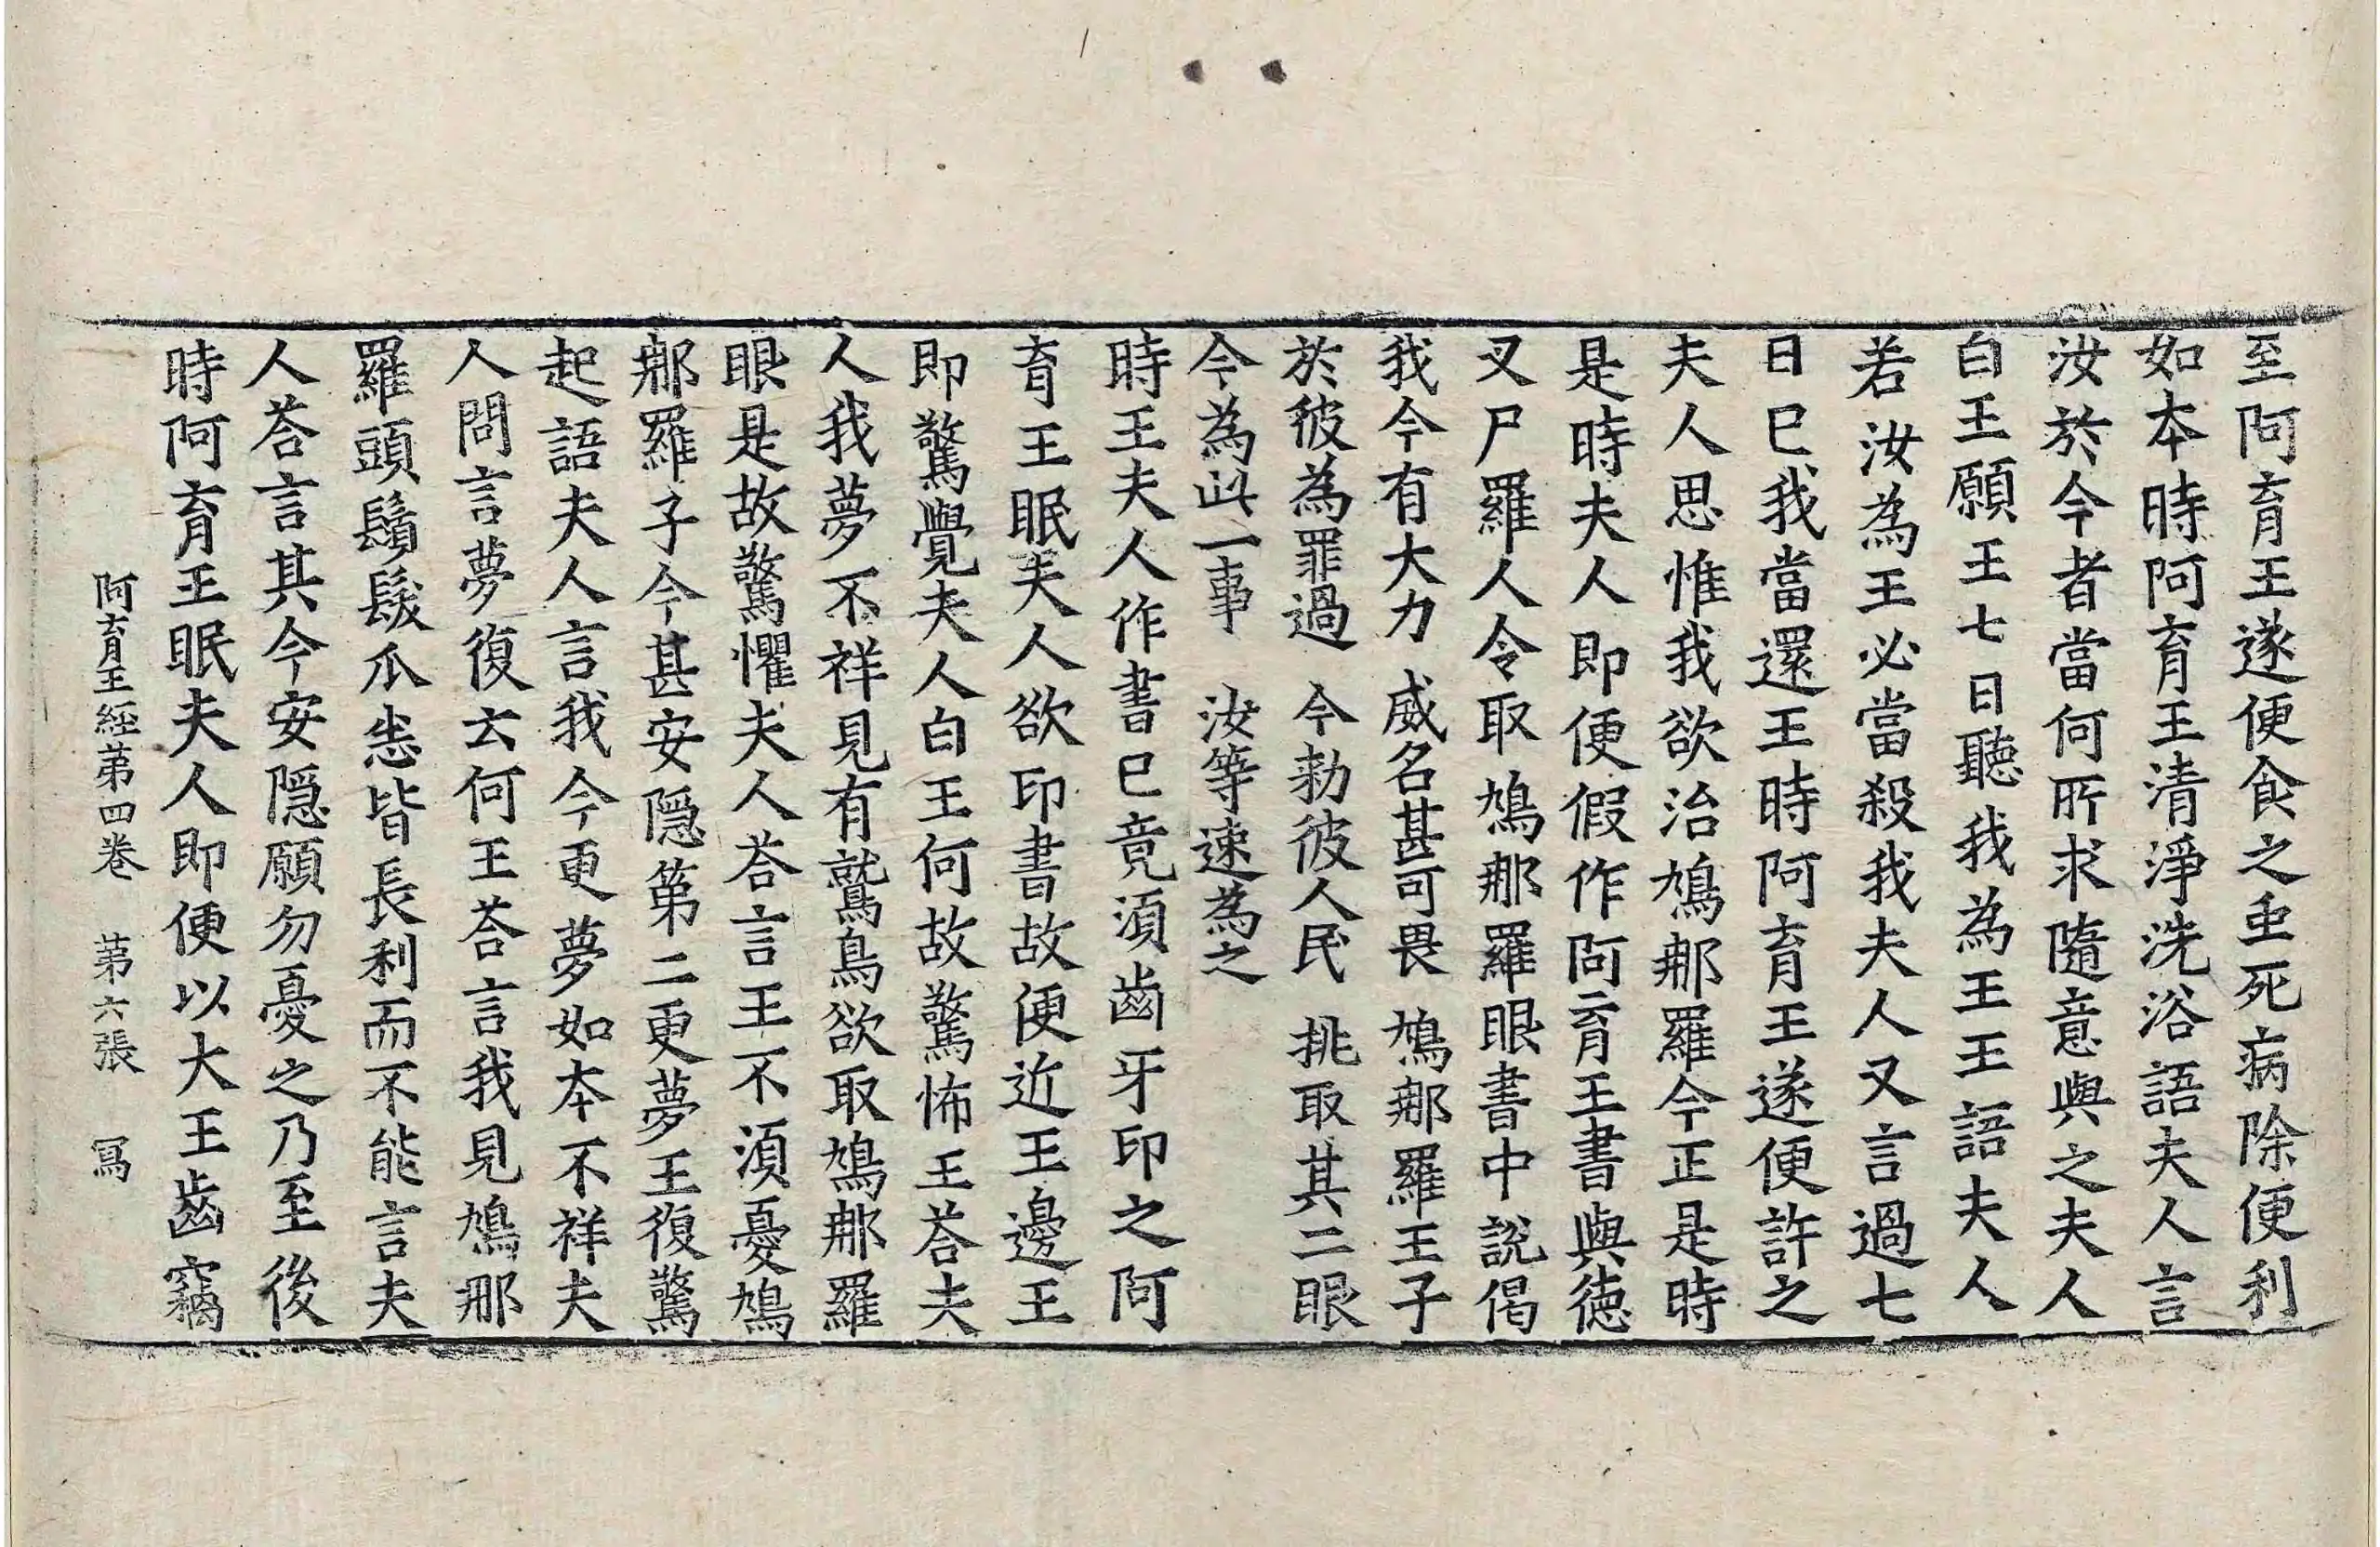 至阿育王遂便食之虫死病除便利
如本時阿育王清淨洗浴語夫人言
汝於今者當何所求隨意與之夫人
白王願王七日聽我為王王語夫人
若汝為王必當殺我夫人又言過七
日已我當還王時阿育王遂便許之
夫人思惟我欲治鳩那羅今正是時
是時夫人即便假作阿育王書與德
叉尸羅人令取鳩那羅眼書中說偈
我今有大力　威名甚可畏　鳩那羅王子
於彼為罪過　今勑彼人民　挑取其二眼
今為此一事　汝等速為之
時王夫人作書已竟須齒牙印之阿
育王眠夫人欲印書故便近王邊王
即驚覺夫人白王何故驚怖王荅夫
人我夢不祥見有鷲鳥欲取鳩那羅
眼是故驚懼夫人荅言王不須憂鳩
那羅子今甚安隱第二更夢王復驚
起語夫人言我今更夢如本不祥夫
人問言夢復云何王荅言我見鳩那
羅頭鬚髮爪悉皆長利而不能言夫
人荅言其今安隱願勿憂之乃至後
時阿育王眠夫人即便以大王齒竊
阿育王經第四卷　第六張　寫